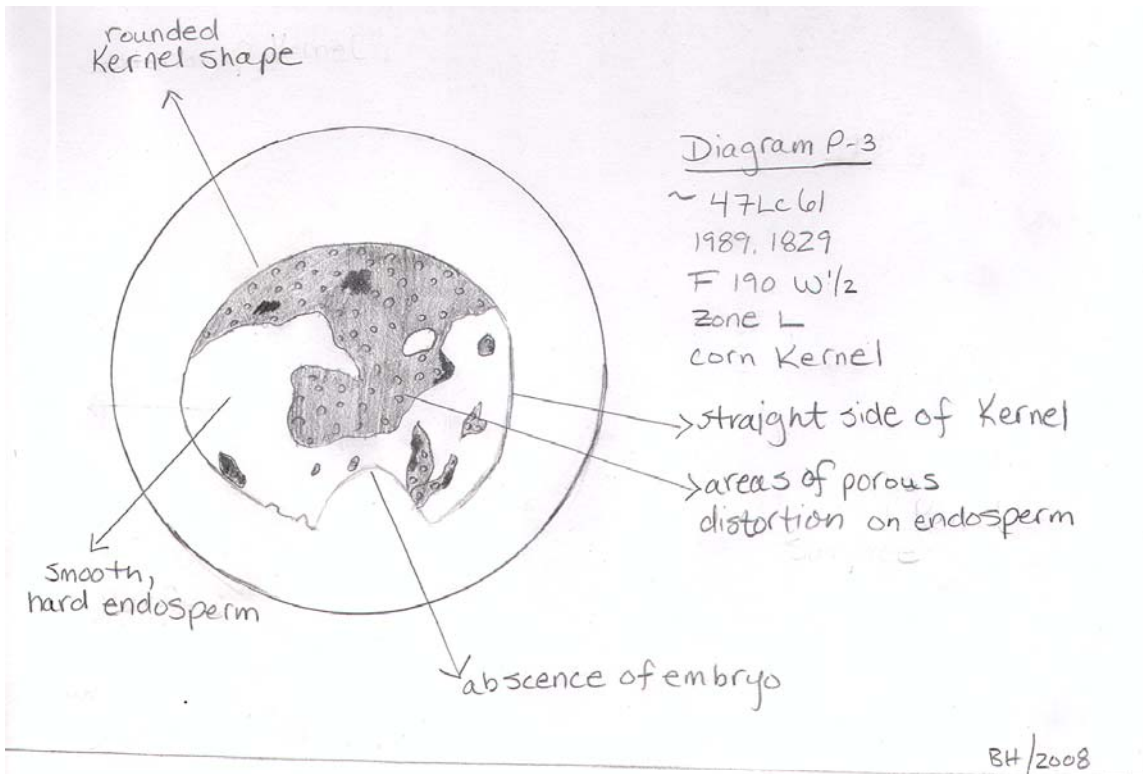 rounded
Kernel shape
Diagram P-3
~ 47Lc61
1989.1829
F 190 W1/2
Zone L
corn Kernel
straight side of Kernel
areas of porous
distortion on endosperm
smooth,
hard endosperm
abscence of embryo
BH/2008